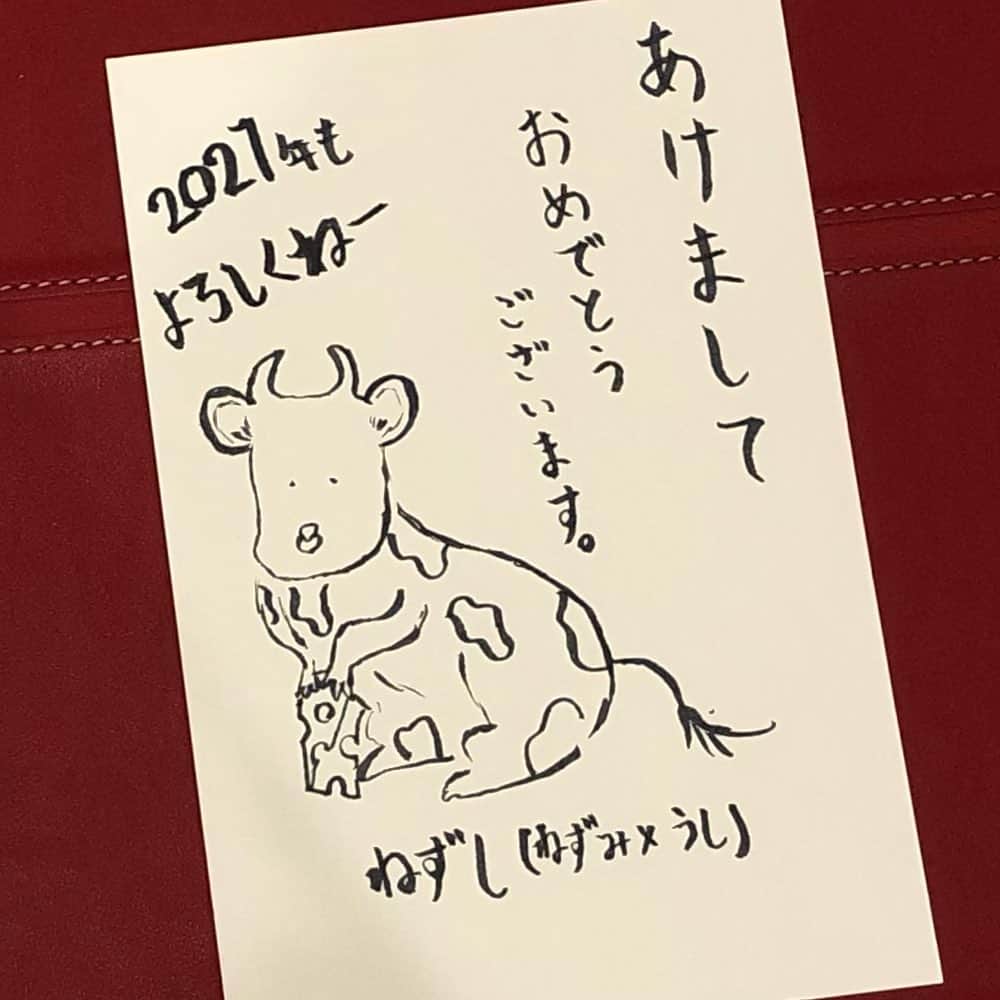 あけまして
おめでとう
ございます。
2021年も
よろしくねー
ねずし(ねずみ×うし)